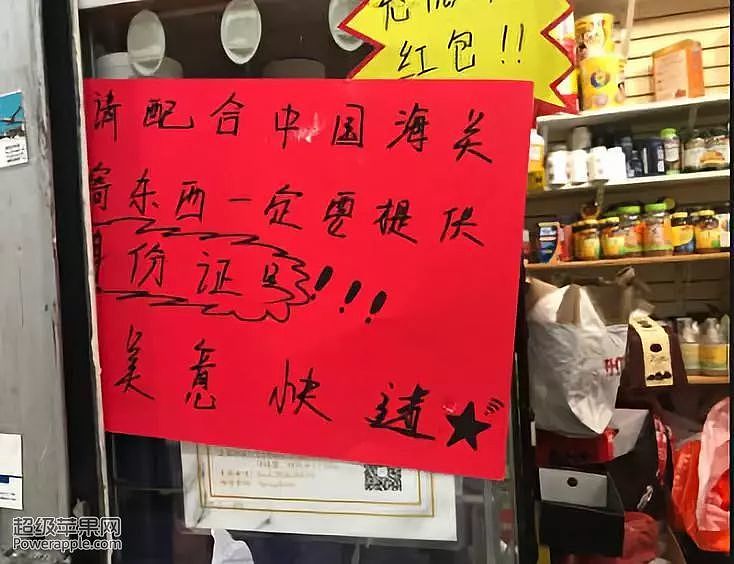 红包!!
请配合中国海关
寄东西一定要提供
身份证号!!!
美意快递
超级苹果网
Powerapple.com